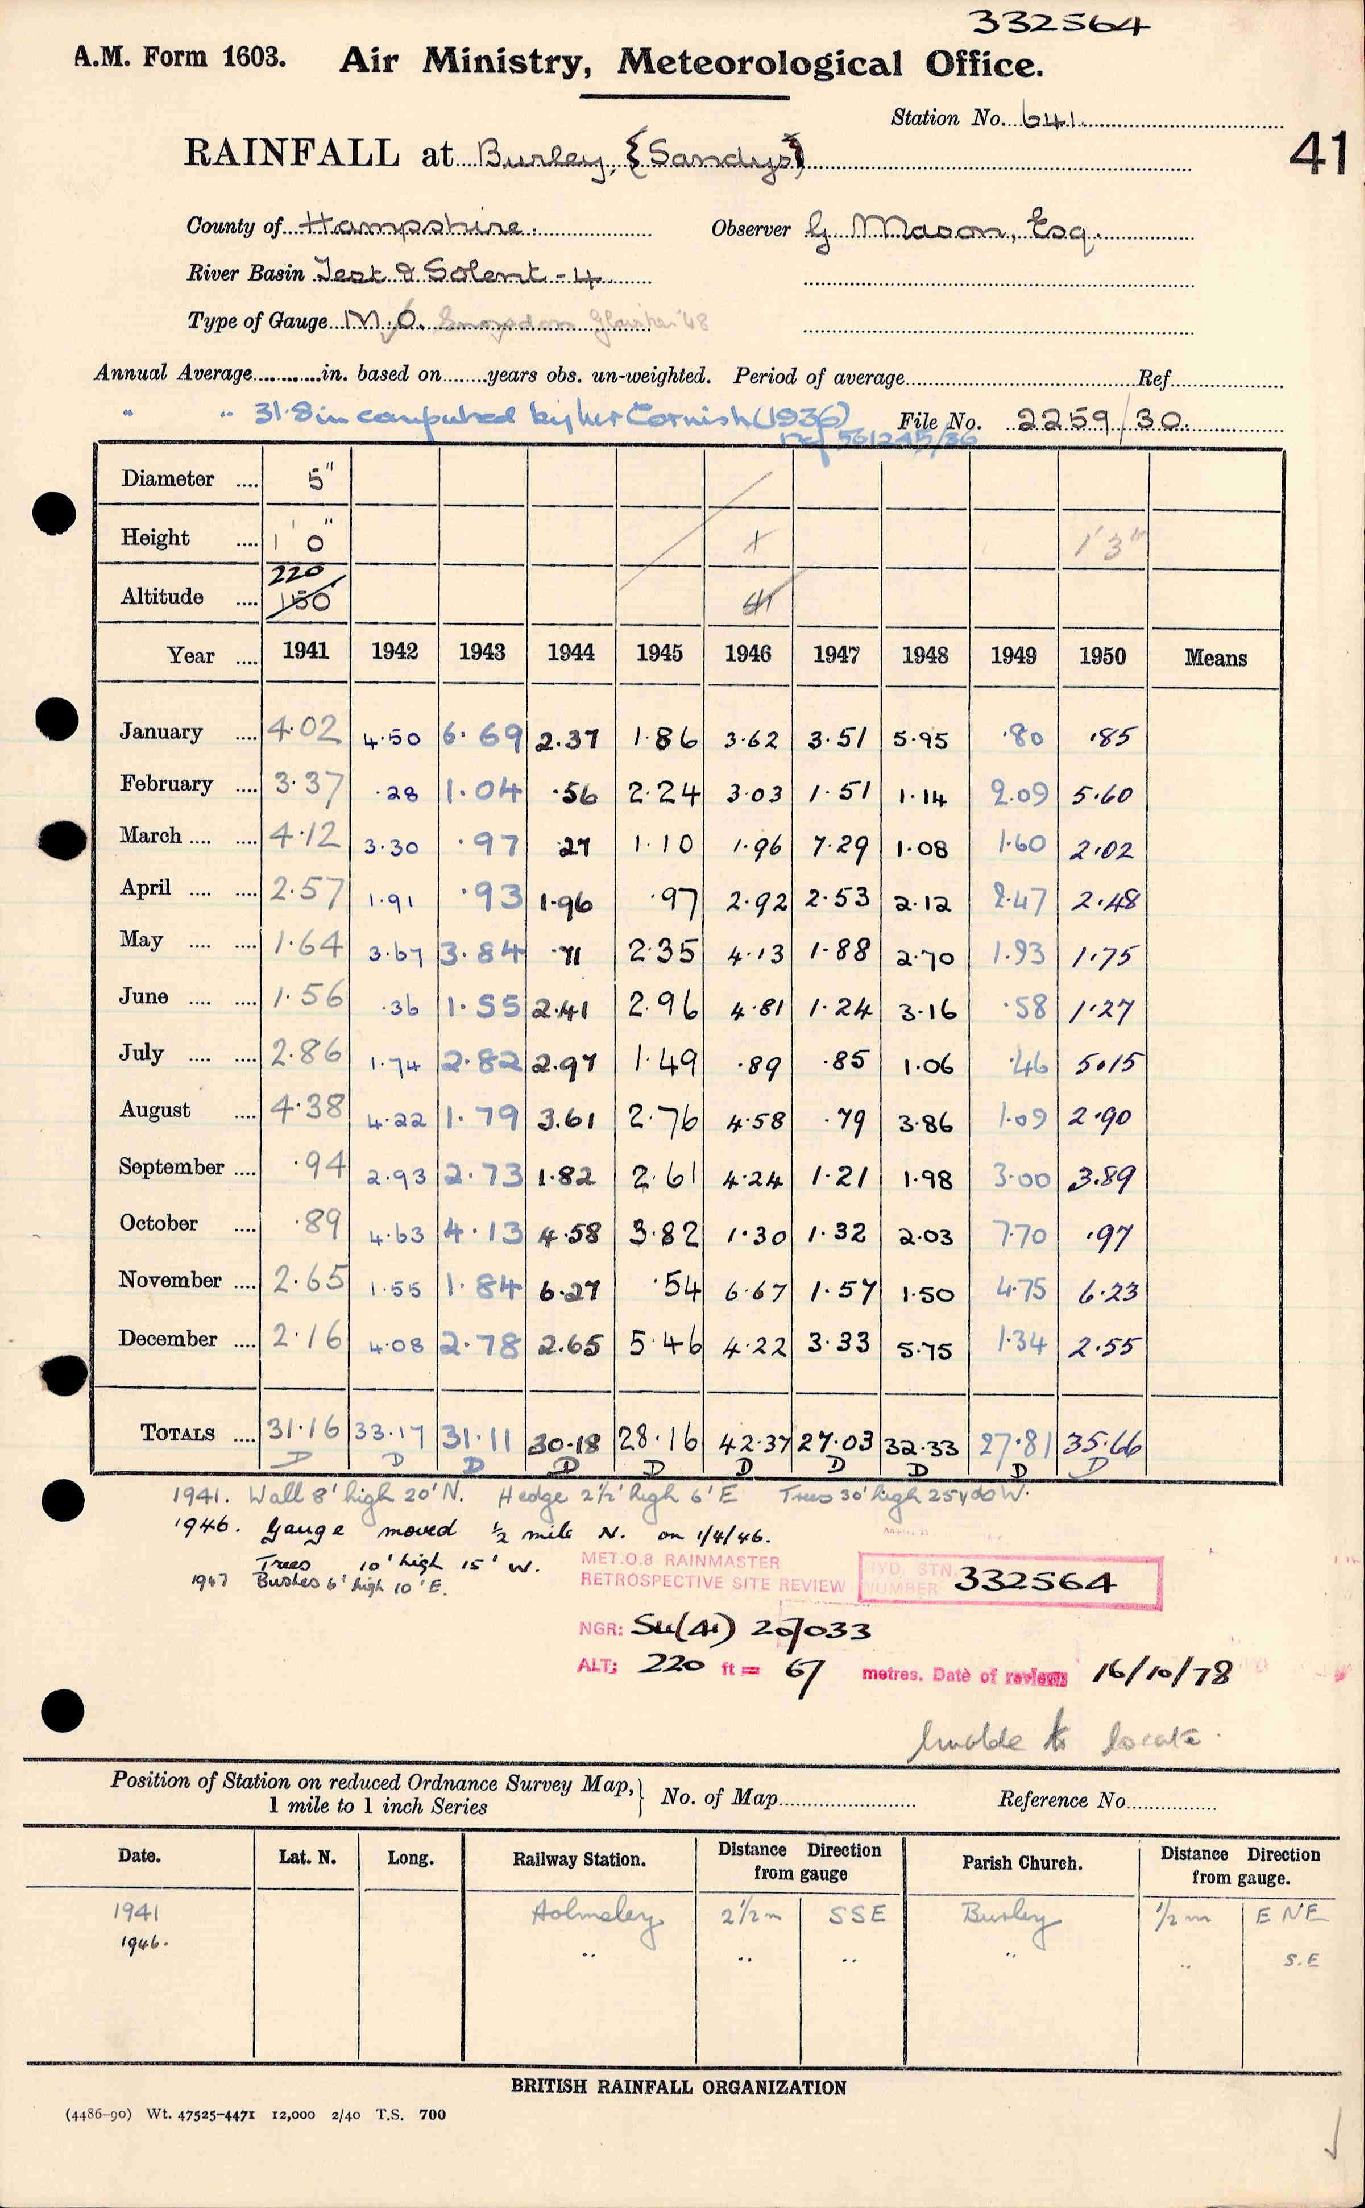 332564
A.M. Form 1603. Air Ministry, Meteorological Office.
Station No. 641.
41
RAINFALL at Burley, {Sandys}
County of Hampshire. Observer G Mason, Esq.
River Basin Test & Solent - 4
Type of Gauge M.O. Snowdon Glaisher '48
Annual Average............in. based on........years obs. un-weighted. Period of average............Ref............
" " 31.8 in computed by Mr Cornish (1936) File No. 2259/30.
ref 561245/36
Diameter .... 5"
Height .... 1' 0" x 1' 3"
220
Altitude .... 150
Year .... 1941 1942 1943 1944 1945 1946 1947 1948 1949 1950 Means
January .... 4.02 4.50 6.69 2.37 1.86 3.62 3.51 5.95 .80 .85
February .... 3.37 .28 1.04 .56 2.24 3.03 1.51 1.14 2.09 5.60
March .... .... 4.12 3.30 .97 .27 1.10 1.96 7.29 1.08 1.60 2.02
April .... .... 2.57 1.91 .93 1.96 .97 2.92 2.53 2.12 2.47 2.48
May .... .... 1.64 3.67 3.84 .71 2.35 4.13 1.88 2.70 1.93 1.75
June .... .... 1.56 .36 1.55 2.41 2.96 4.81 1.24 3.16 .58 1.27
July .... .... 2.86 1.74 2.82 2.97 1.49 .89 .85 1.06 .46 5.15
August .... 4.38 4.22 1.79 3.61 2.76 4.58 .79 3.86 1.09 2.90
September .... .94 2.93 2.73 1.82 2.61 4.24 1.21 1.98 3.00 3.89
October .... .89 4.63 4.13 4.58 3.82 1.30 1.32 2.03 7.70 .97
November .... 2.65 1.55 1.84 6.27 .54 6.67 1.57 1.50 4.75 6.23
December .... 2.16 4.08 2.78 2.65 5.46 4.22 3.33 5.75 1.34 2.55
TOTALS .... 31.16 33.17 31.11 30.18 28.16 42.37 27.03 32.33 27.81 35.66
D D D D D D D D D D
1941. Wall 8' high 20' N. Hedge 2½' high 6' E Trees 30' high 25 yds W.
1946. Gauge moved ½ mile N. on 1/4/46.
Trees 10' high 15' W.
1947 Bushes 6' high 10' E.
MET.O.8 RAINMASTER
RETROSPECTIVE SITE REVIEW
HYD. STN. NUMBER 332564
NGR: SU(41) 20/033
ALT: 220 ft = 67 metres. Date of review 16/10/78
Unable to locate.
Position of Station on reduced Ordnance Survey Map, } No. of Map............ Reference No............
1 mile to 1 inch Series
Date. Lat. N. Long. Railway Station. Distance Direction from gauge Parish Church. Distance Direction from gauge.
1941 Holmsley 2½ m SSE Burley ½ m ENE
1946. " " " " " S.E
BRITISH RAINFALL ORGANIZATION
(4486-90) Wt. 47525-4471 12,000 2/40 T.S. 700